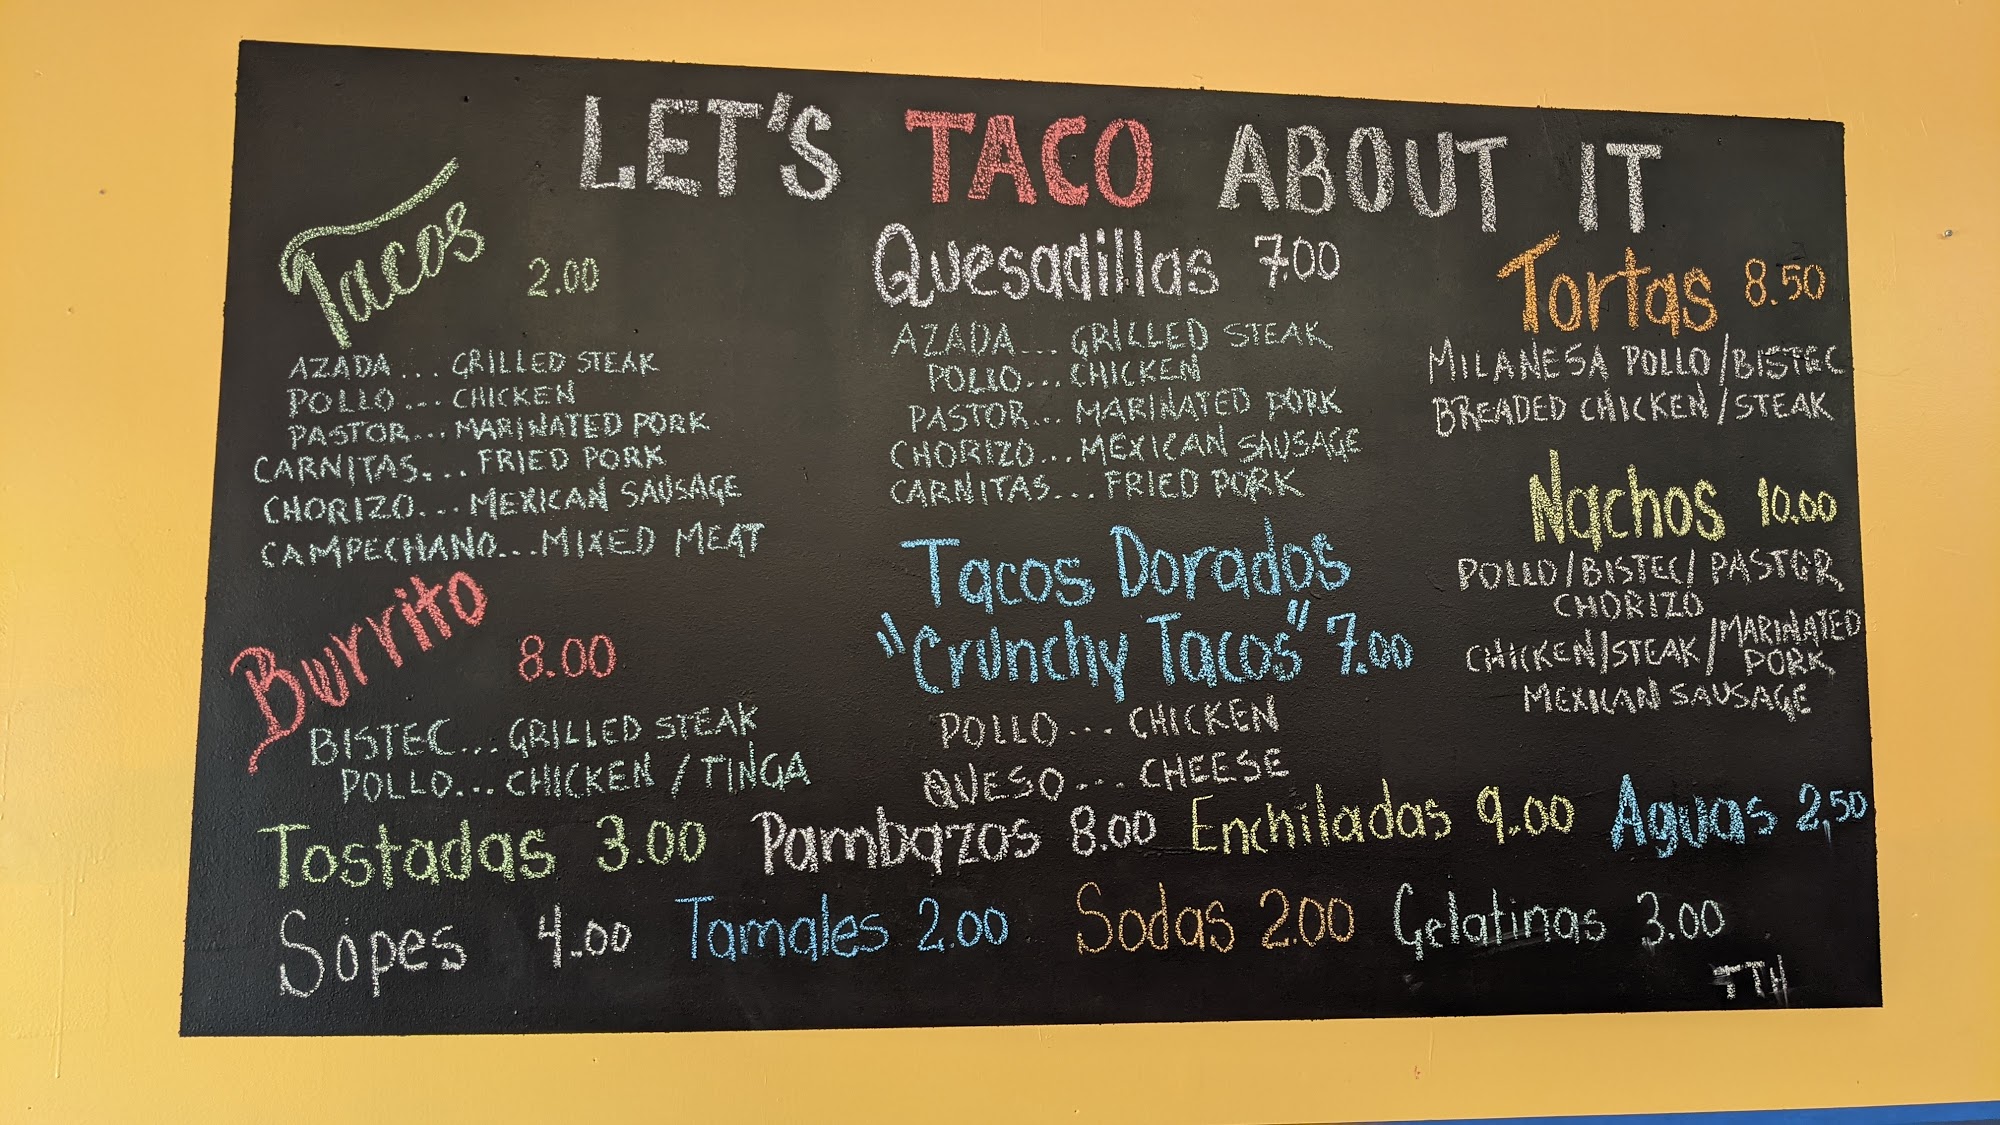 LET'S TACO ABOUT IT
Tacos 2.00
AZADA... GRILLED STEAK
POLLO... CHICKEN
PASTOR... MARINATED PORK
CARNITAS... FRIED PORK
CHORIZO... MEXICAN SAUSAGE
CAMPECHANO... MIXED MEAT
Burrito 8.00
BISTEC... GRILLED STEAK
POLLO... CHICKEN / TINGA
Quesadillas 7.00
AZADA... GRILLED STEAK
POLLO... CHICKEN
PASTOR... MARINATED PORK
CHORIZO... MEXICAN SAUSAGE
CARNITAS... FRIED PORK
Tacos Dorados
"Crunchy Tacos" 7.00
POLLO... CHICKEN
QUESO... CHEESE
Tortas 8.50
MILANESA POLLO/BISTEC
BREADED CHICKEN/STEAK
Nachos 10.00
POLLO/BISTEC/PASTOR
CHORIZO
CHICKEN/STEAK/MARINATED
PORK
MEXICAN SAUSAGE
Tostadas 3.00 Pambazos 8.00 Enchiladas 9.00 Aguas 2,50
Sopes 4.00 Tamales 2.00 Sodas 2.00 Gelatinas 3.00
TTH